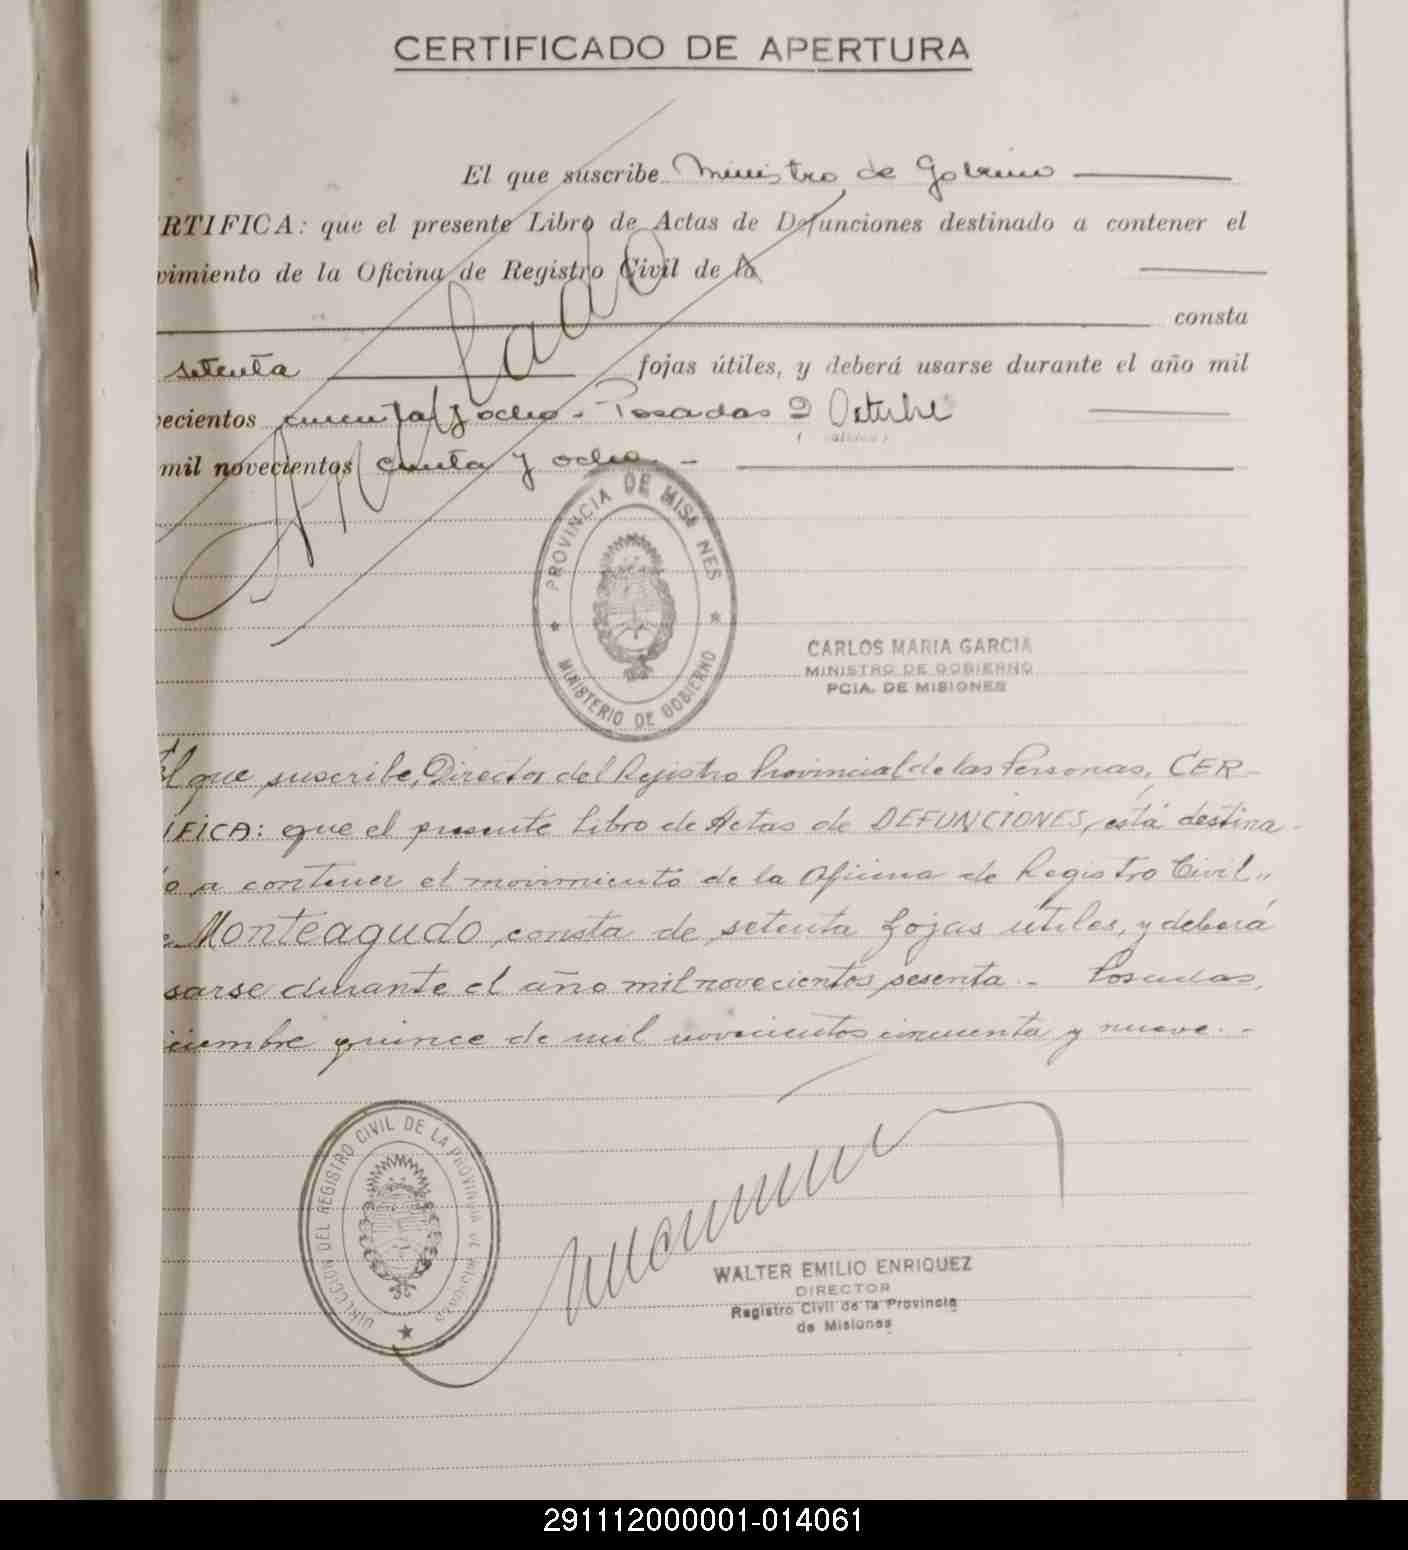 CERTIFICADO DE APERTURA
El que suscribe Ministro de Gobierno
RTIFICA: que el presente Libro de Actas de Defunciones destinado a contener el
vimiento de la Oficina de Registro Civil de la
consta
setenta fojas útiles, y deberá usarse durante el año mil
vecientos cincuenta y ocho - Posadas 2 Octubre
mil novecientos cincuenta y ocho. -
Anulado
PROVINCIA DE MISIONES
MINISTERIO DE GOBIERNO
CARLOS MARIA GARCIA
MINISTRO DE GOBIERNO
PCIA. DE MISIONES
El que suscribe, Director del Registro Provincial de las Personas, CER-
IFICA: que el presente Libro de Actas de DEFUNCIONES, está destina-
o a contener el movimiento de la Oficina de Registro Civil
e Monteagudo consta de setenta fojas útiles, y deberá
sarse durante el año mil novecientos sesenta.- Posadas,
iciembre quince de mil novecientos cincuenta y nueve.-
DIRECCION DEL REGISTRO CIVIL DE LA PROVINCIA DE MISIONES
WALTER EMILIO ENRIQUEZ
DIRECTOR
Registro Civil de la Provincia
de Misiones
291112000001-014061